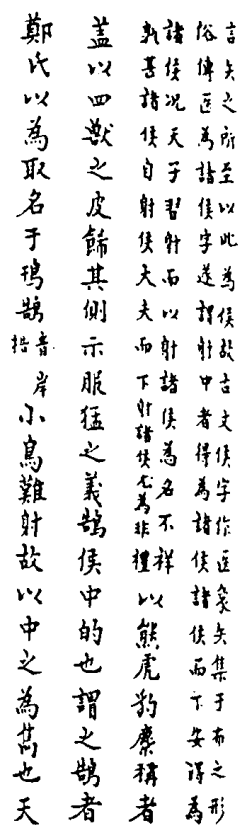 言矢之所至以此為侯故古文侯字作医象矢集于布之形
俗傳医為諸侯字遂謂射中者得為諸侯諸侯而下安得為
諸侯况天子習射而以射諸侯為名不祥
孰甚諸侯自射侯大夫而下射諸侯尤為非禮
以熊虎豹麋稱者
蓋以四獸之皮飾其側示服猛之義鵠侯中的也謂之鵠者
鄭氏以為取名于鳱鵠音岸小鳥難射故以中之為雋也天